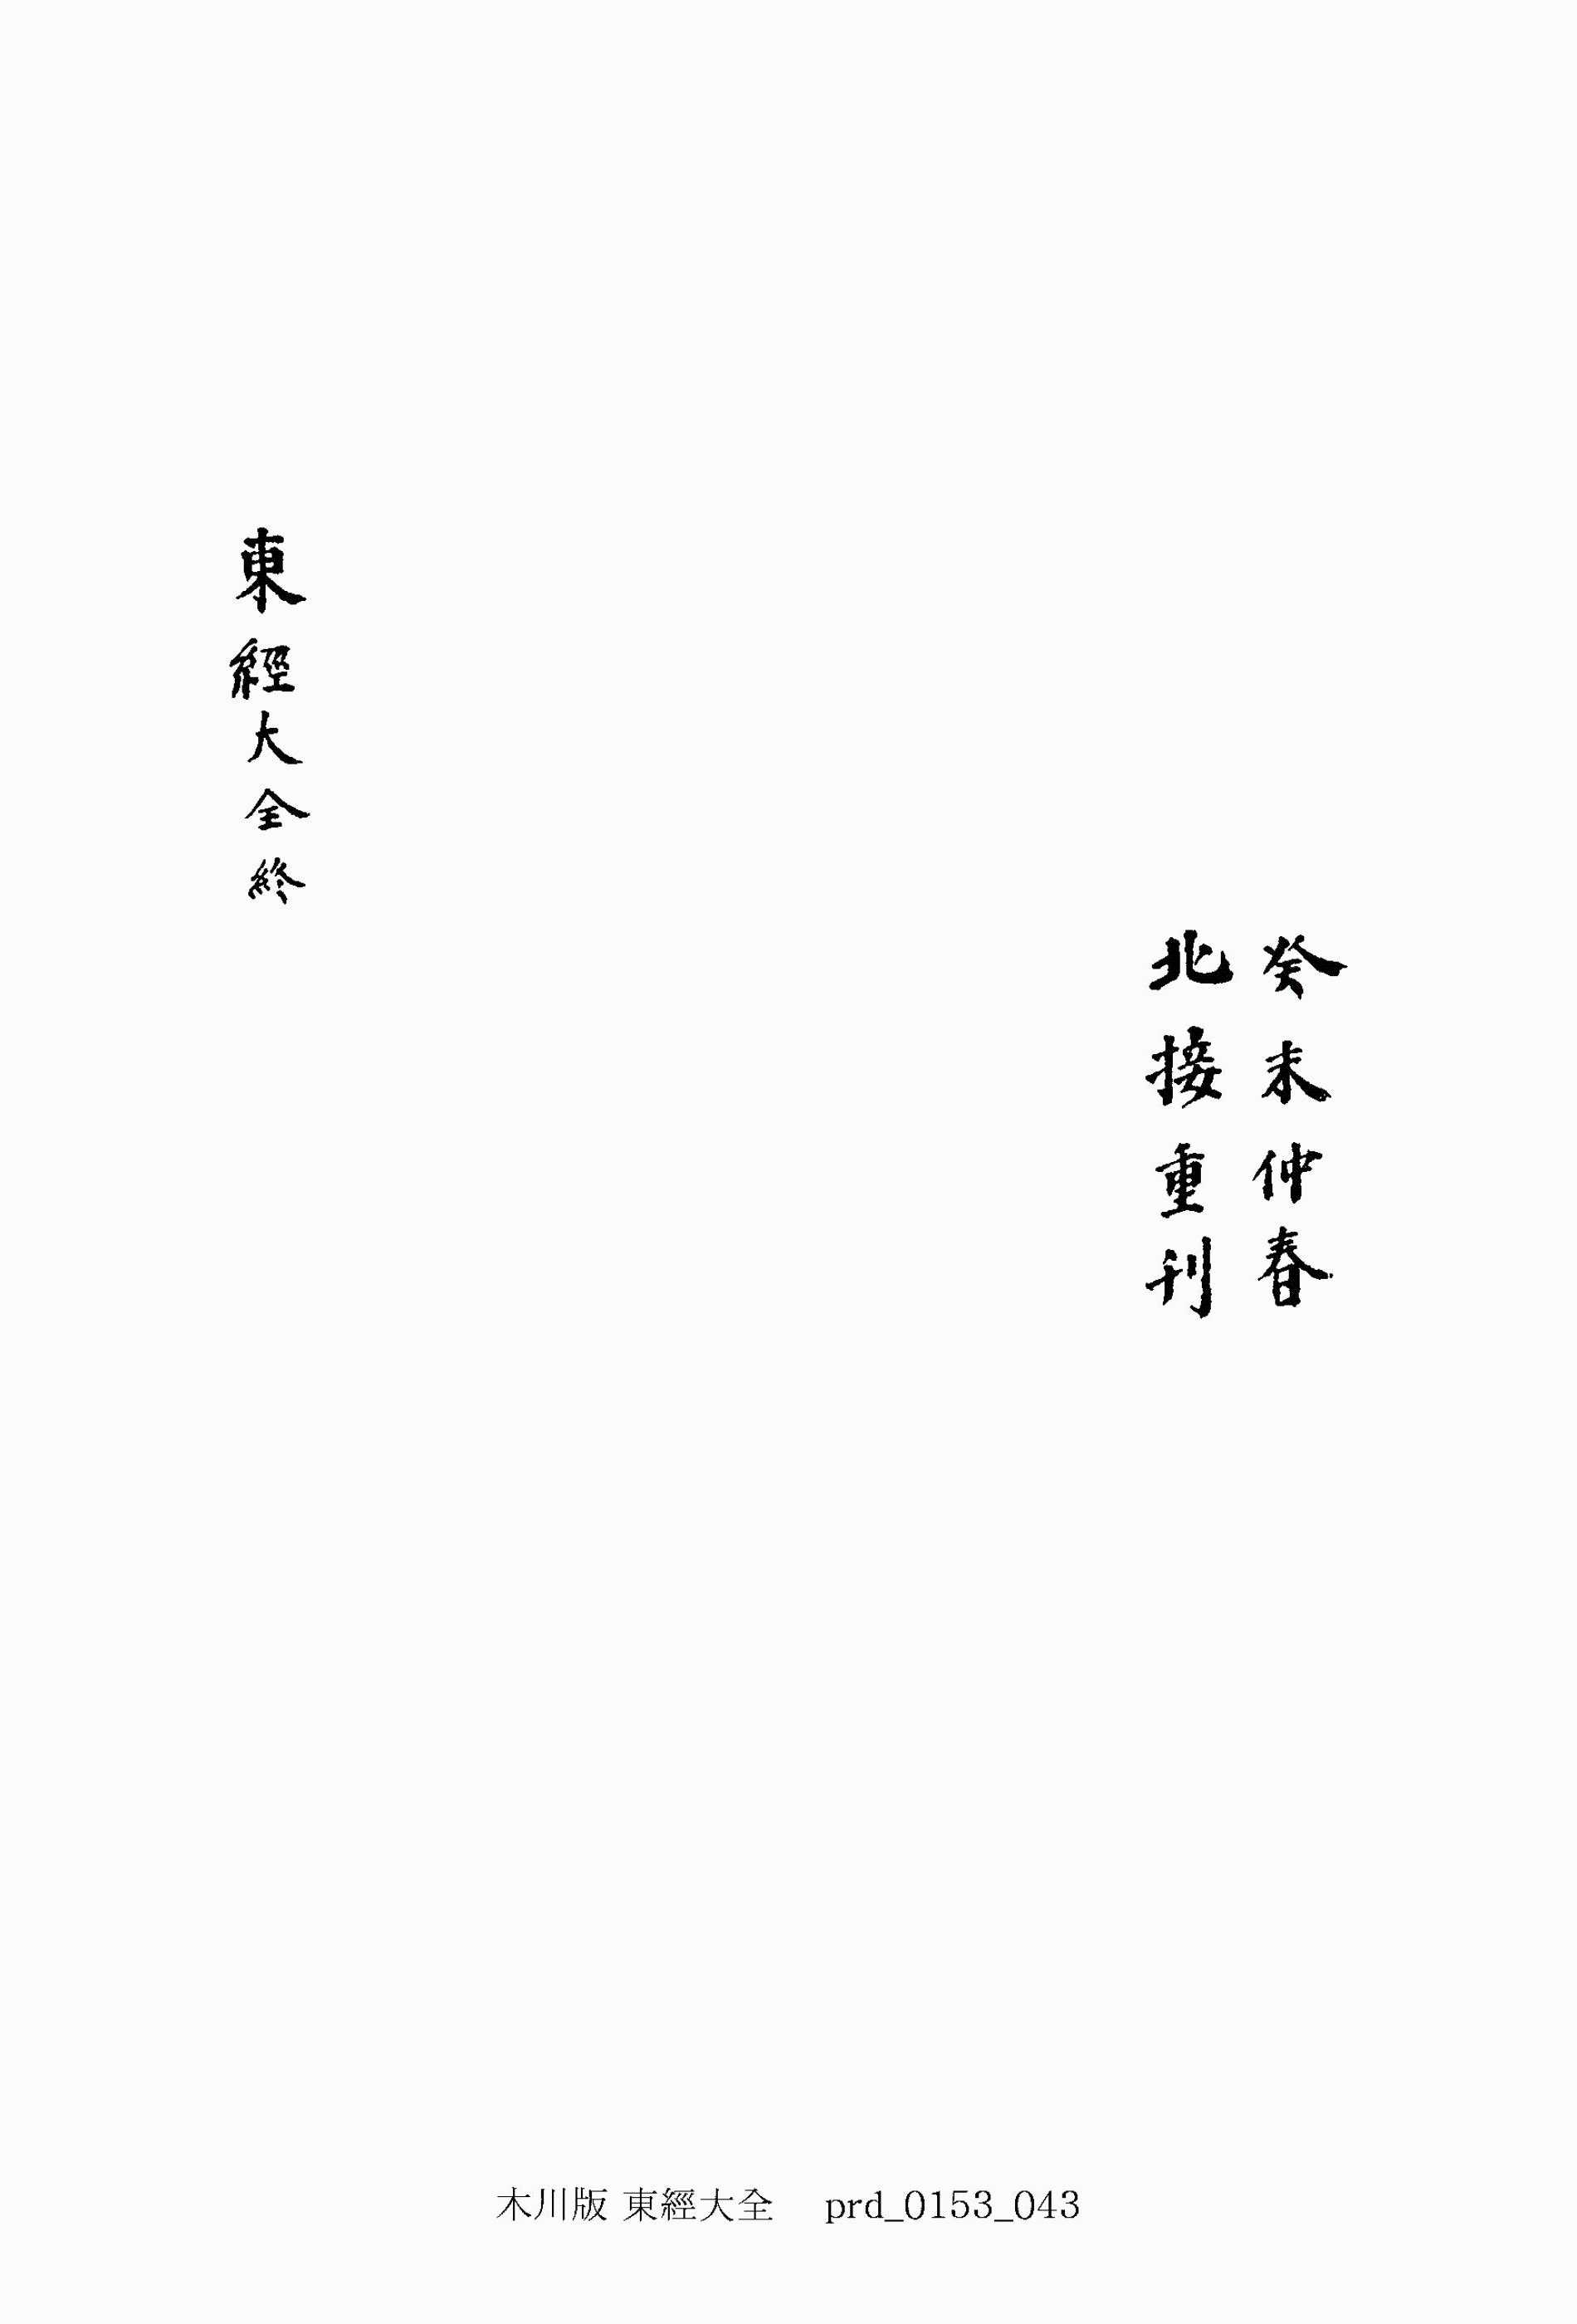 癸未仲春
北接重刊
東經大全終
木川版 東經大全 prd_0153_043